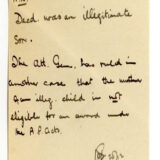 Deed was an illegitimate
son.
The Att. Gen. has ruled in
another case that the mother
of an illeg. child is not
eligible for an award under
the A.P. acts.